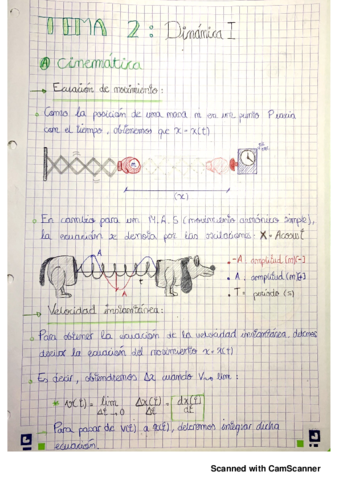 TEMA 2: Dinámica I
A Cinemática
Ecuación de movimiento:
Como la posición de una masa m en un punto P varía
con el tiempo, obtenemos que x = x(t)
(x)
En cambio para un M.A.S (movimiento armónico simple),
la ecuación se denota por las oscilaciones: X = A cos ωt
-A amplitud (m)[-]
A
t
A: amplitud (m)[+]
A
T = periodo (s)
Velocidad instantánea:
Para obtener la ecuación de la velocidad instantánea, debemos
derivar la ecuación del movimiento x = x(t)
Es decir, obtendremos Δx cuando
lim:
v(t) = lim Δx(t) = dx(t)
Δt → 0 Δt dt
Para pasar de v(t) a x(t), deberemos integrar dicha
ecuación.
Scanned with CamScanner